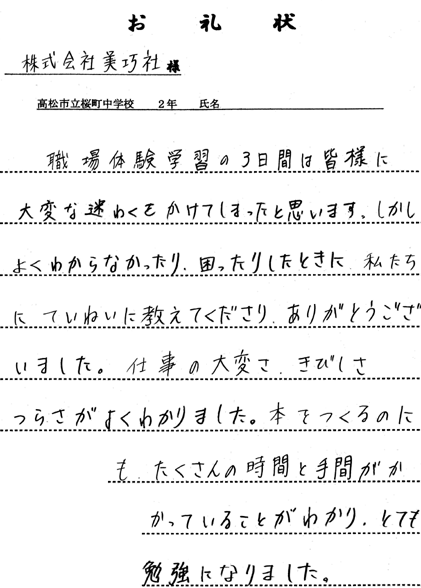 お礼状
株式会社美巧社様
高松市立桜町中学校 2年 氏名
職場体験学習の3日間は皆様に
大変な迷わくをかけてしまったと思います。しかし
よくわからなかったり、困ったりしたときに、私たち
に ていねいに教えてくださり、ありがとうござ
いました。仕事の大変さ、きびしさ
つらさがよくわかりました。本をつくるのに
も、たくさんの時間と手間がか
かっていることがわかり、とても
勉強になりました。